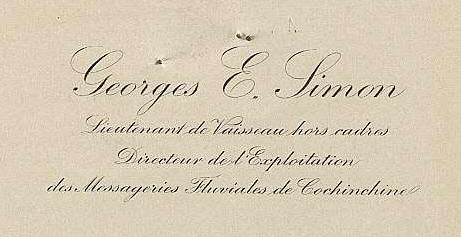 Georges E. Simon
Lieutenant de Vaisseau hors cadres
Directeur de l'Exploitation
des Messageries Fluviales de Cochinchine